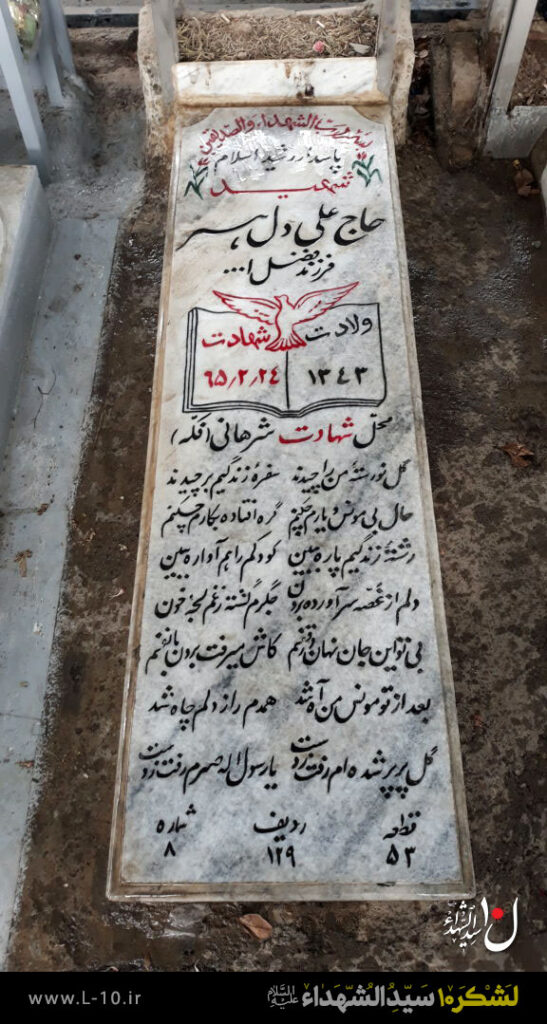 بسم رب الشهداء والصدیقین
پاسدار رشید اسلام
شهید
حاج علی دل بسر
فرزند فضل ا...
ولادت شهادت
۱۳۴۳ ۶۵/۲/۲۴
محل شهادت شرهانی (فکه)
گل نورستهٔ من را چیدند سفرهٔ زندگیم برچیدند
حال بی مونس و یارم چکنم گره افتاده بکارم چکنم
رشتهٔ زندگیم پاره ببین کودکم را هم آواره ببین
دلم از غصه سر آورده برون جگرم گشته ز غم لجه خون
بی تو این جان نهان در قفسم کاش میرفت برون با نفسم
بعد از تو مونس من آه شد همدم راز دلم چاه شد
گل پرپر شده ام رفت ز دست یا رسول اله صبرم رفت ز دست
قطعه ردیف شماره
۵۳ ۱۲۹ ۸
ل۱۰ سیدالشهداء
www.L-10.ir لشکر۱۰ سیدالشهداء علیه‌السلام